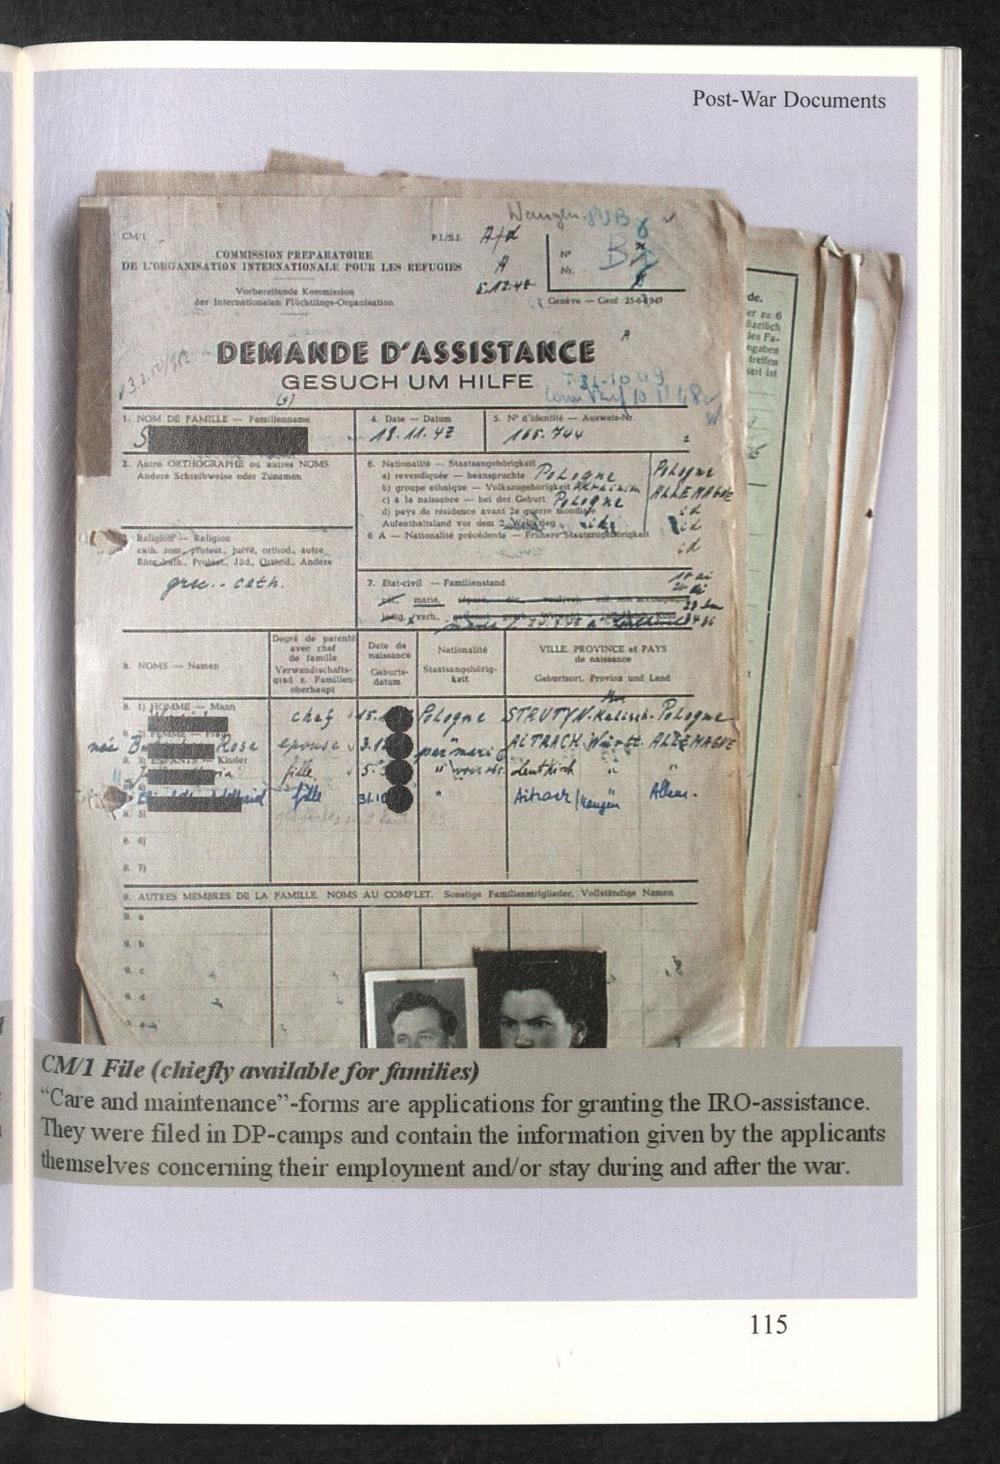 Post-War Documents
Wangen
CM/1
P.I./S.I.
A
5.12.48
COMMISSION PREPARATOIRE
DE L'ORGANISATION INTERNATIONALE POUR LES REFUGIES
Vorbereitende Kommission
der Internationalen Flüchtlings-Organisation
N°
Nr.
Genève — Genf
DEMANDE D'ASSISTANCE
GESUCH UM HILFE
1. NOM DE FAMILLE — Familienname
S
4. Date — Datum
18.11.47
5. N° d'identité — Ausweis-Nr.
165.744
2. Autre ORTHOGRAPHE ou autres NOMS
Andere Schreibweise oder Zunamen
6. Nationalité — Staatsangehörigkeit
a) revendiquée — beanspruchte Pologne
b) groupe ethnique — Volkszugehörigkeit
c) à la naissance — bei der Geburt Pologne
d) pays de résidence avant 2e guerre mondiale
Aufenthaltsland vor dem 2. Weltkrieg
6 A — Nationalité précédente — Frühere Staatszugehörigkeit
Pologne
ALLEMAGNE
id
id
id
Religion — Religion
cath. rom., protest., juive, orthod., autre
Röm.-kath., Protest., Jüd., Orthod., Andere
grec. cath.
7. Etat-civil — Familienstand
marié,
verh.,
8. NOMS — Namen
Degré de parenté
avec chef
de famille
Verwandtschafts-
grad z. Familien-
oberhaupt
Date de
naissance
Geburts-
datum
Nationalité
Staatsangehörig-
keit
VILLE, PROVINCE et PAYS
de naissance
Geburtsort, Provinz und Land
8. 1) HOMME — Mann
chef 15. Pologne STRUTYN. Kalisch. Pologne
née B Rose épouse 3.1 par mari AITRACH Württ. ALLEMAGNE
Kinder
fille 5. " Leutkirch " "
fille 31.10 " Aitrach/Wangen Allem.
8. 5)
8. 6)
8. 7)
9. AUTRES MEMBRES DE LA FAMILLE, NOMS AU COMPLET. Sonstige Familienmitglieder, Vollständige Namen
9. a
9. b
9. c
9. d
de.
er zu 6
CM/1 File (chiefly available for families)
“Care and maintenance”-forms are applications for granting the IRO-assistance.
They were filed in DP-camps and contain the information given by the applicants
themselves concerning their employment and/or stay during and after the war.
115